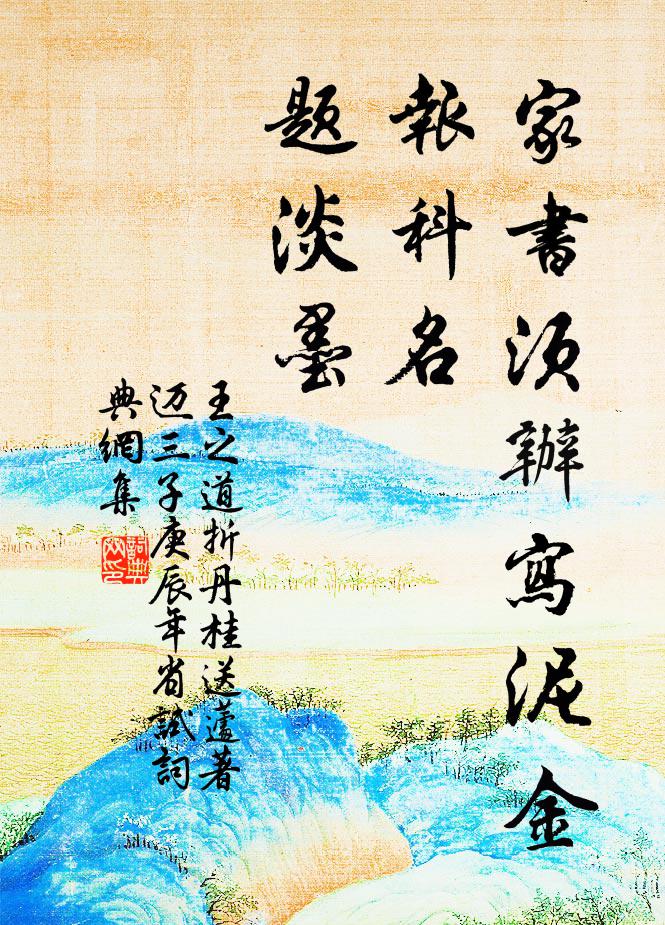 家書須辦寫泥金
報科名
題淡墨
王之道折丹桂送蘧著
迈三子庚辰年省試詞
典網集
詞典網印